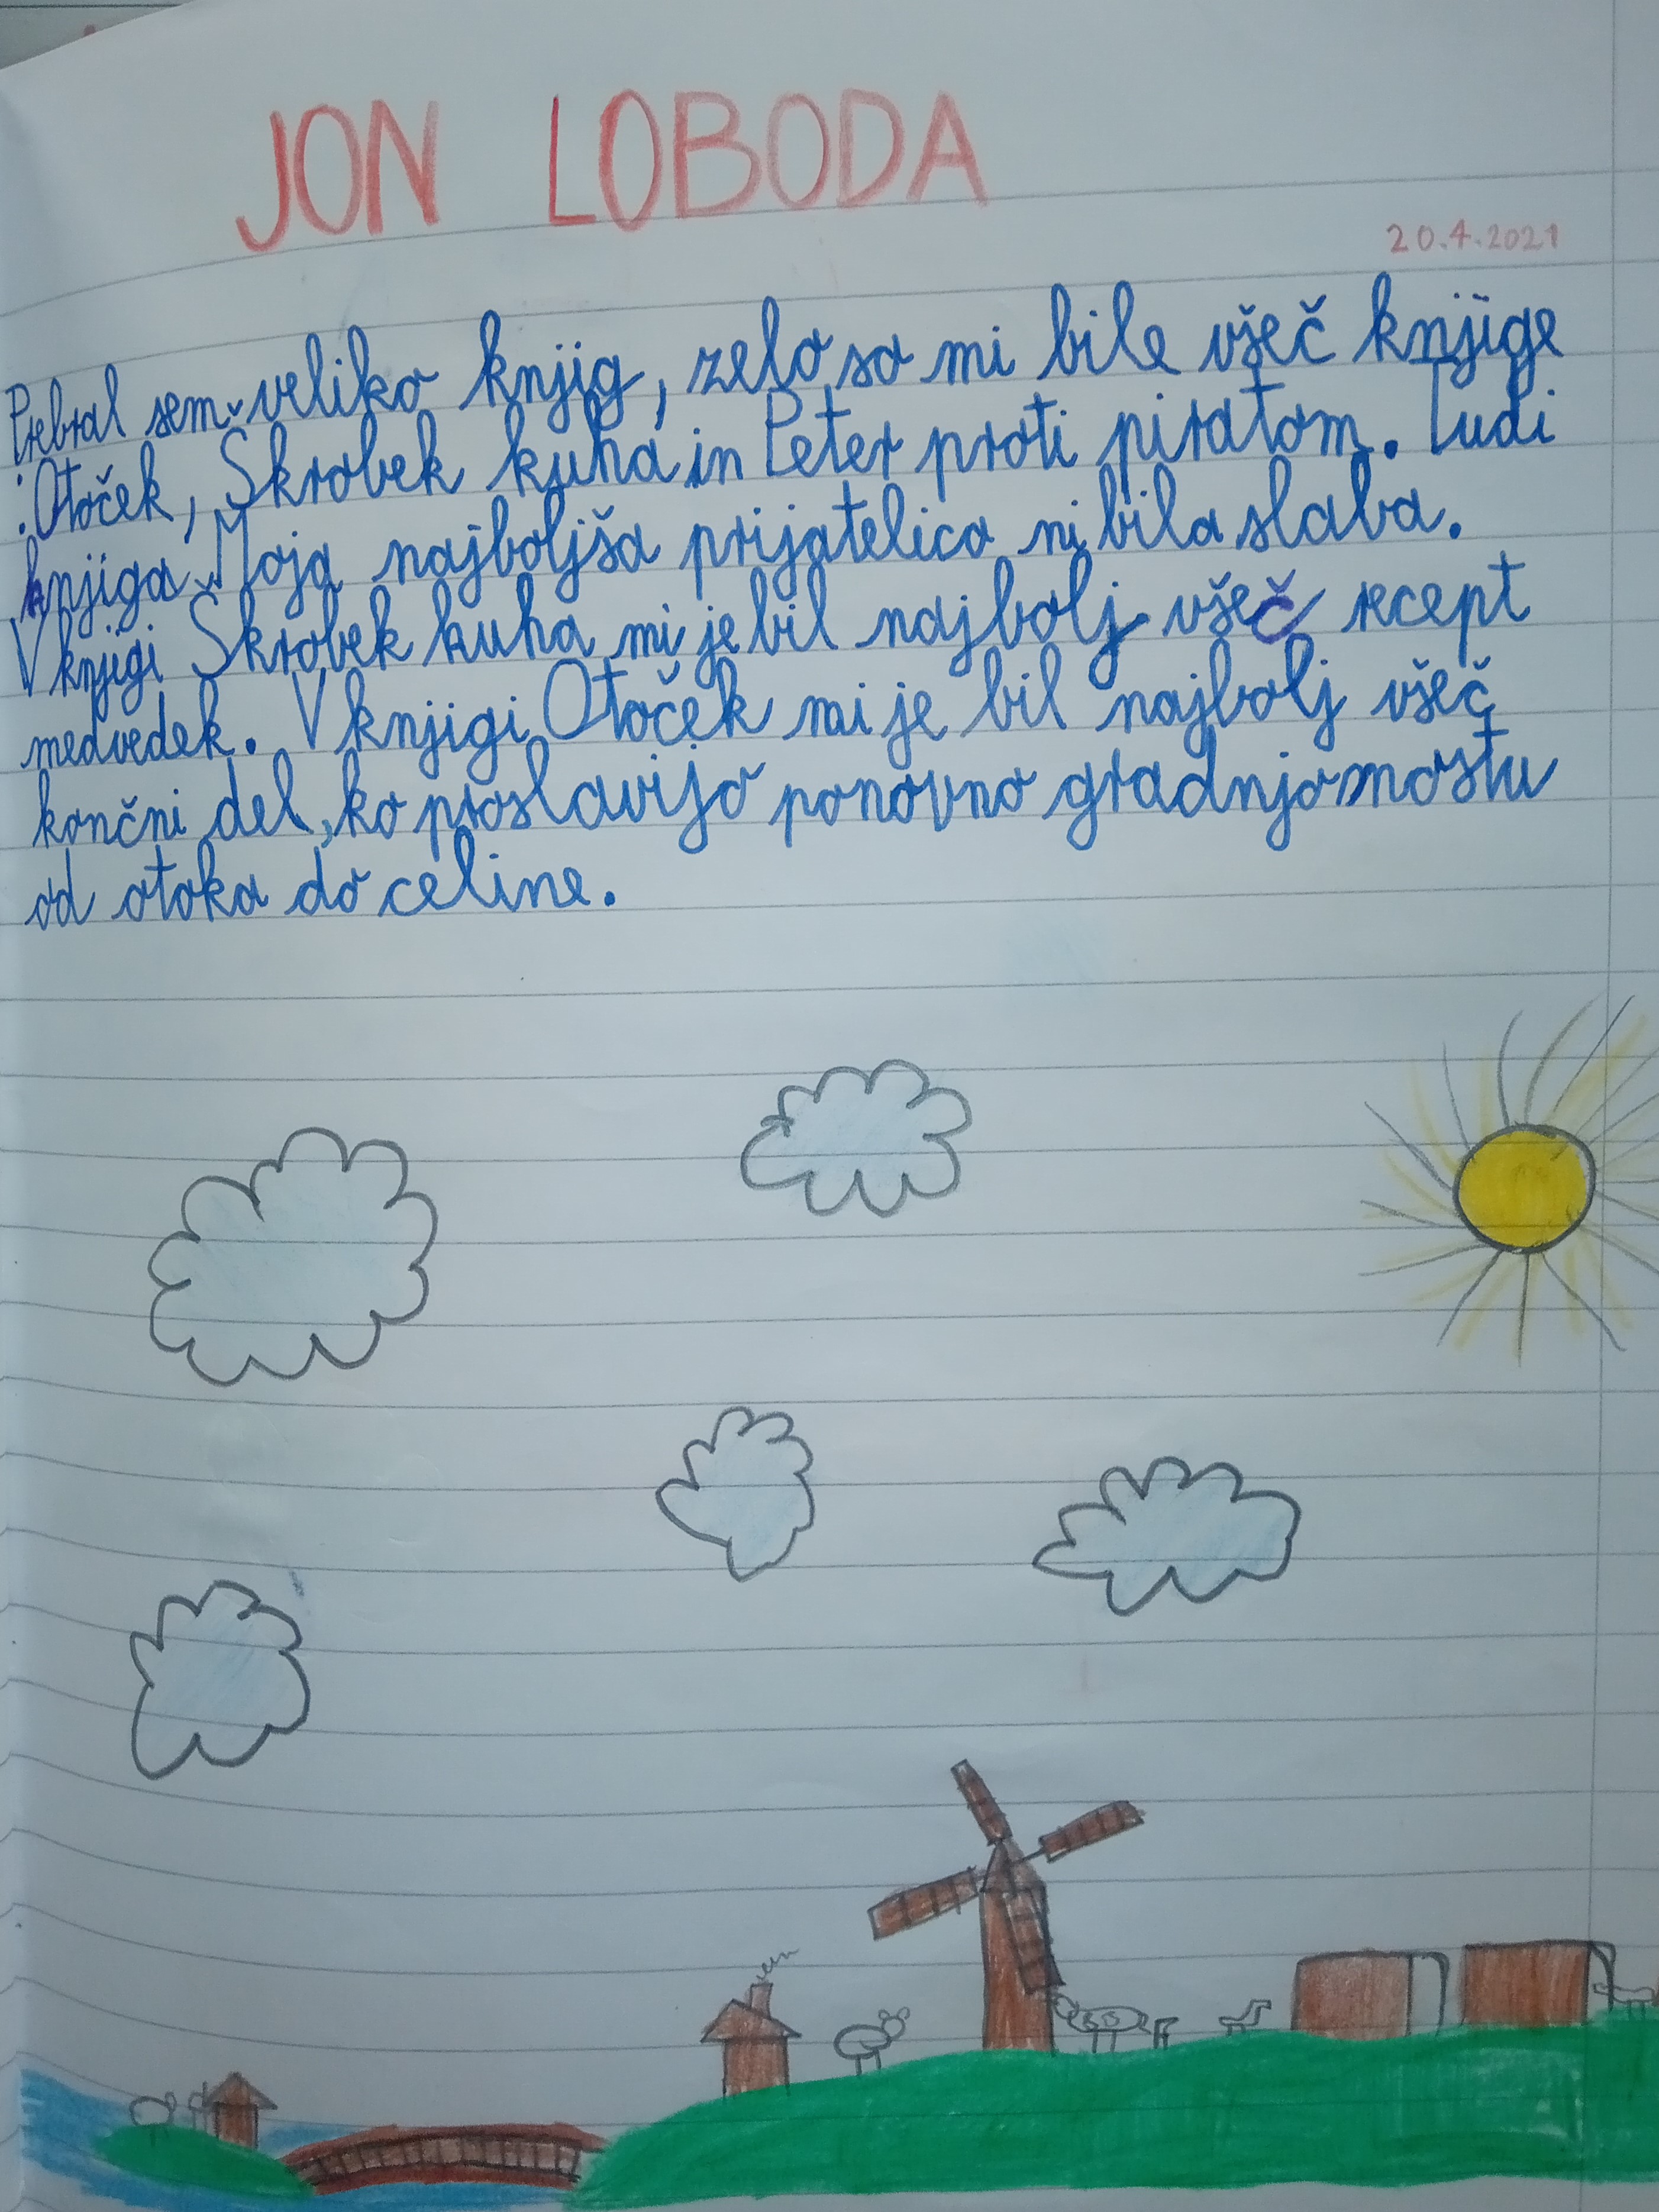 JON LOBODA
20.4.2021
Prebral sem veliko knjig, zelo so mi bile všeč knjige
:Otoček, Škrobek kuha in Peter proti piratom. Tudi
knjiga Moja najboljša prijatelica ni bila slaba.
V knjigi Škrobek kuha mi je bil najbolj všeč recept
medvedek. V knjigi Otoček mi je bil najbolj všeč
končni del, ko proslavijo ponovno gradnjo mostu
od otoka do celine.